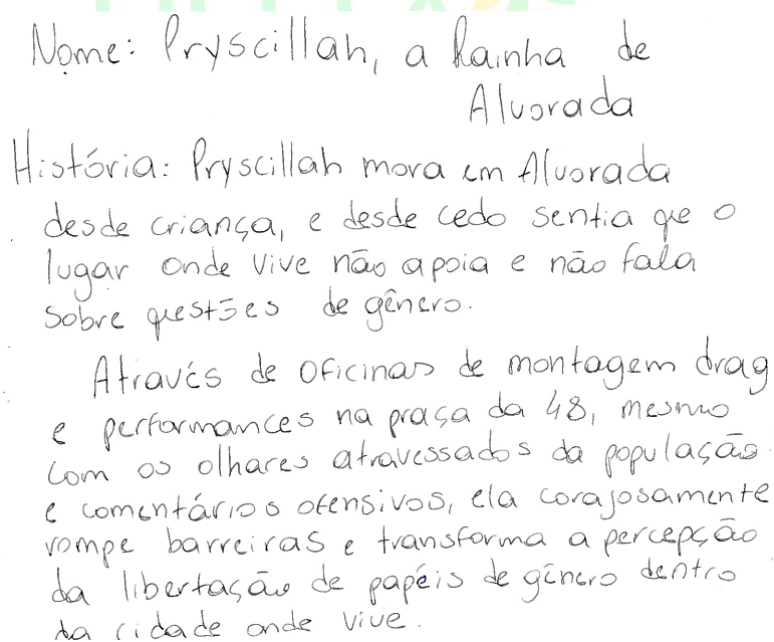 Nome: Pryscillah, a Rainha de
Alvorada
História: Pryscillah mora em Alvorada
desde criança, e desde cedo sentia que o
lugar onde vive não apoia e não fala
sobre questões de gênero.
Através de oficinas de montagem drag
e performances na praça da 48, mesmo
com os olhares atravessados da população
e comentários ofensivos, ela corajosamente
rompe barreiras e transforma a percepção
da libertação de papéis de gênero dentro
da cidade onde vive.